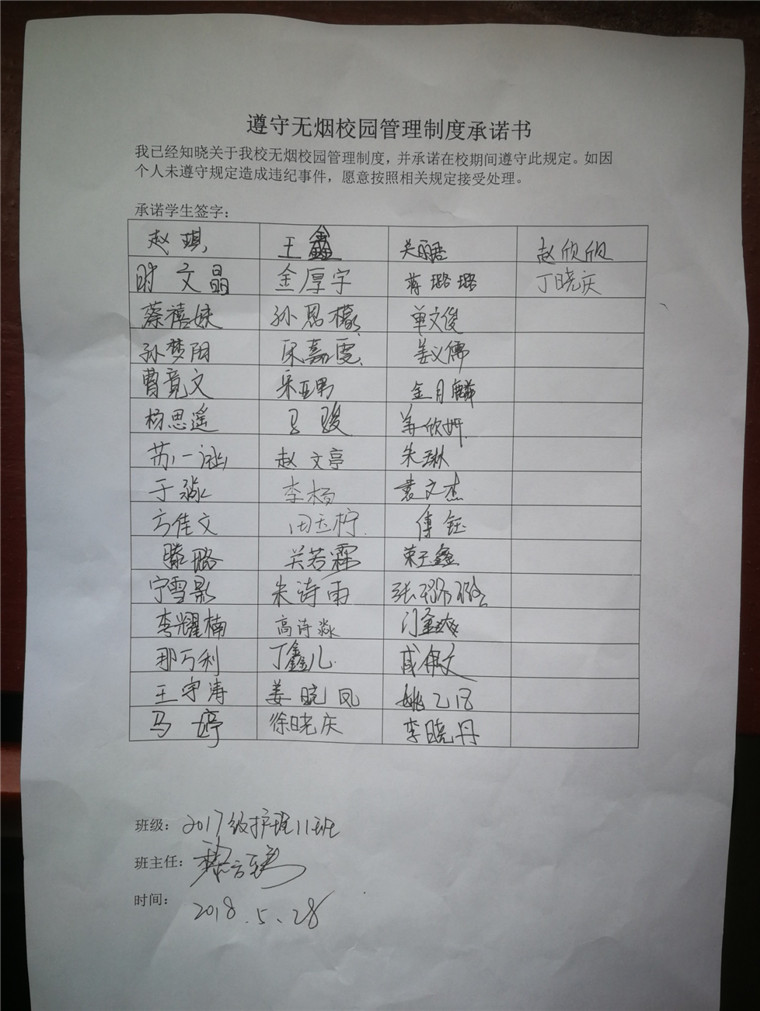 遵守无烟校园管理制度承诺书
我已经知晓关于我校无烟校园管理制度，并承诺在校期间遵守此规定。如因
个人未遵守规定造成违纪事件，愿意按照相关规定接受处理。
承诺学生签字：
赵琪 王鑫 赵欣欣
时文晶 金厚宇 蒋璐璐 丁晓庆
蔡禧妹 孙思檬 单文俊
孙梦阳 宋嘉雯 姜义儒
曹竟文 宋亚男 金月麟
杨思遥 马骏 姜欣妍
苏一涵 赵文亭 朱琳
于淼 李杨 袁文杰
方佳文 田玉柠 傅钰
滕璐 关若霏 鑫
宁雪影 朱诗雨 张
李耀楠 高诗淼 门
那万利 丁鑫儿 戚伟文
王宇涛 姜晓凤 姚
马婷 徐晓庆 李晓丹
班级：2017级护理11班
班主任：
时间：2018.5.28